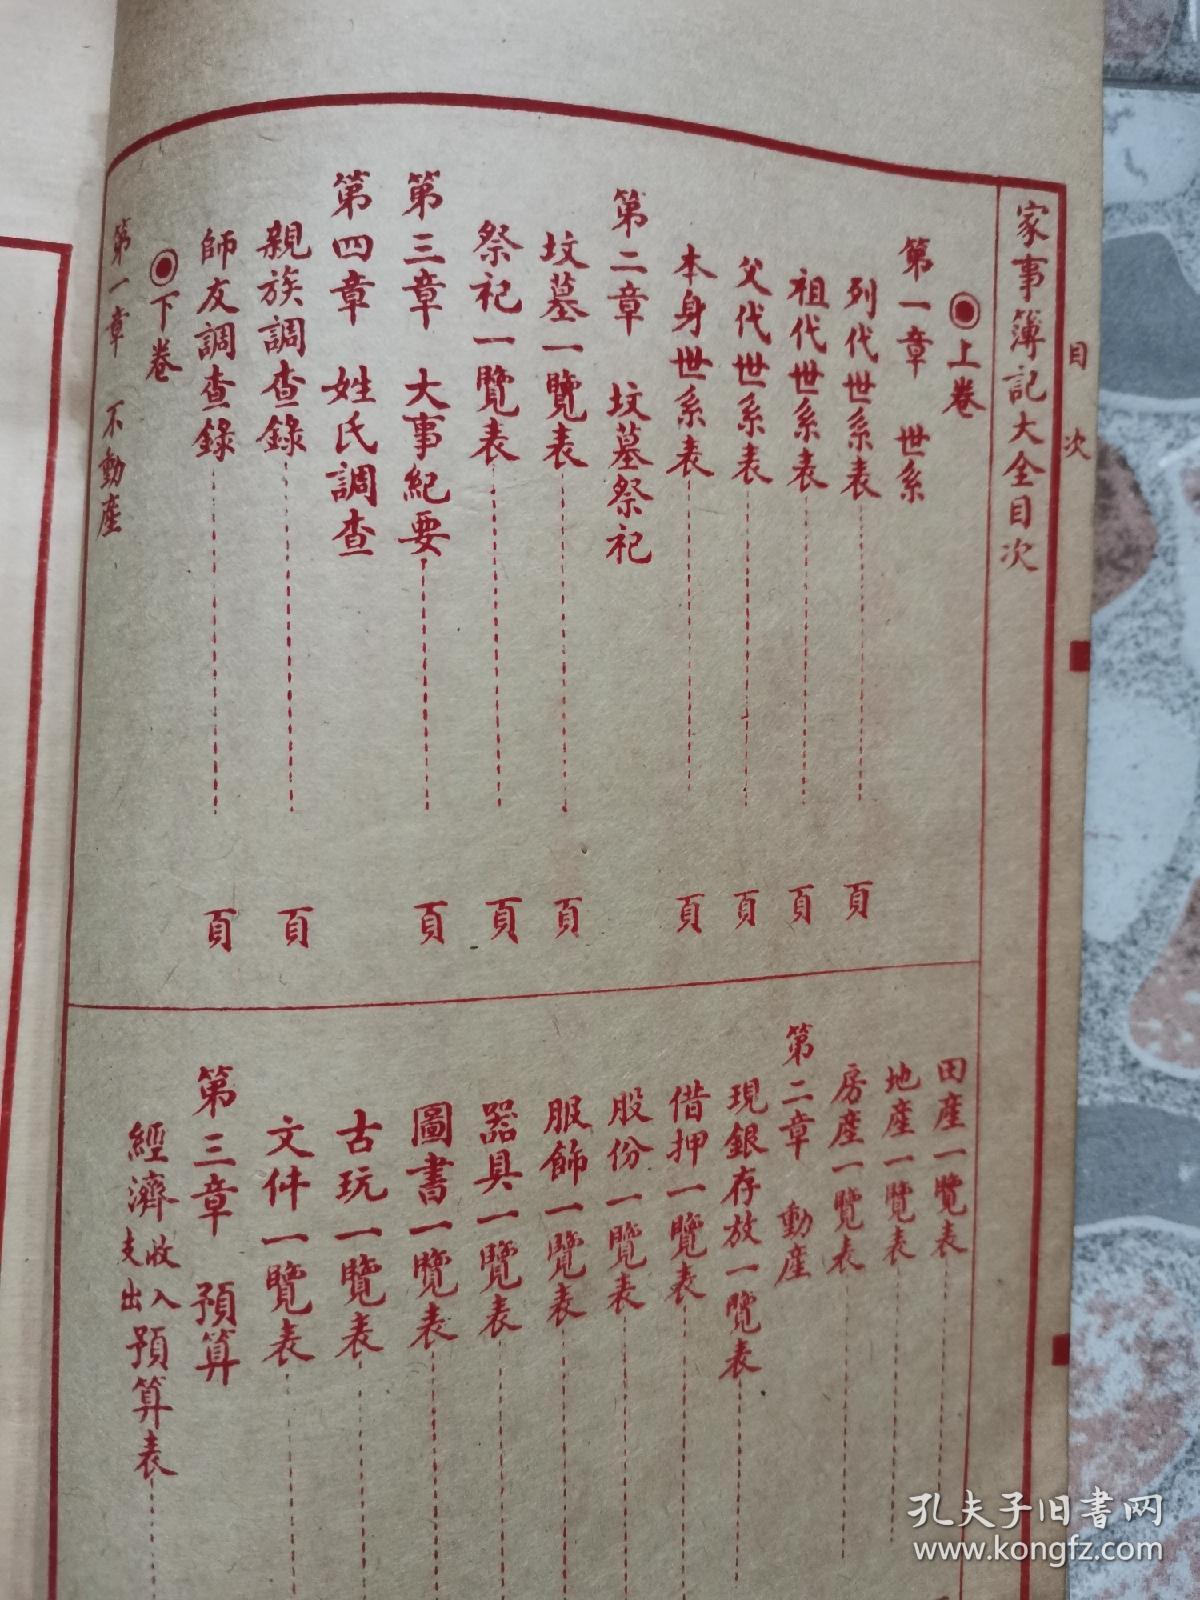 目次
家事簿記大全目次
◉上卷
第一章 世系
列代世系表 頁
祖代世系表 頁
父代世系表 頁
本身世系表 頁
第二章 坟墓祭祀
坟墓一覽表 頁
祭祀一覽表 頁
第三章 大事紀要 頁
第四章 姓氏調查
親族調查錄 頁
師友調查錄 頁
◉下卷
第一章 不動產
田產一覽表
地產一覽表
房產一覽表
第二章 動產
現銀存放一覽表
借押一覽表
股份一覽表
服飾一覽表
器具一覽表
圖書一覽表
古玩一覽表
文件一覽表
第三章 預算
經濟收入支出預算表
孔夫子旧書网
www.kongfz.com